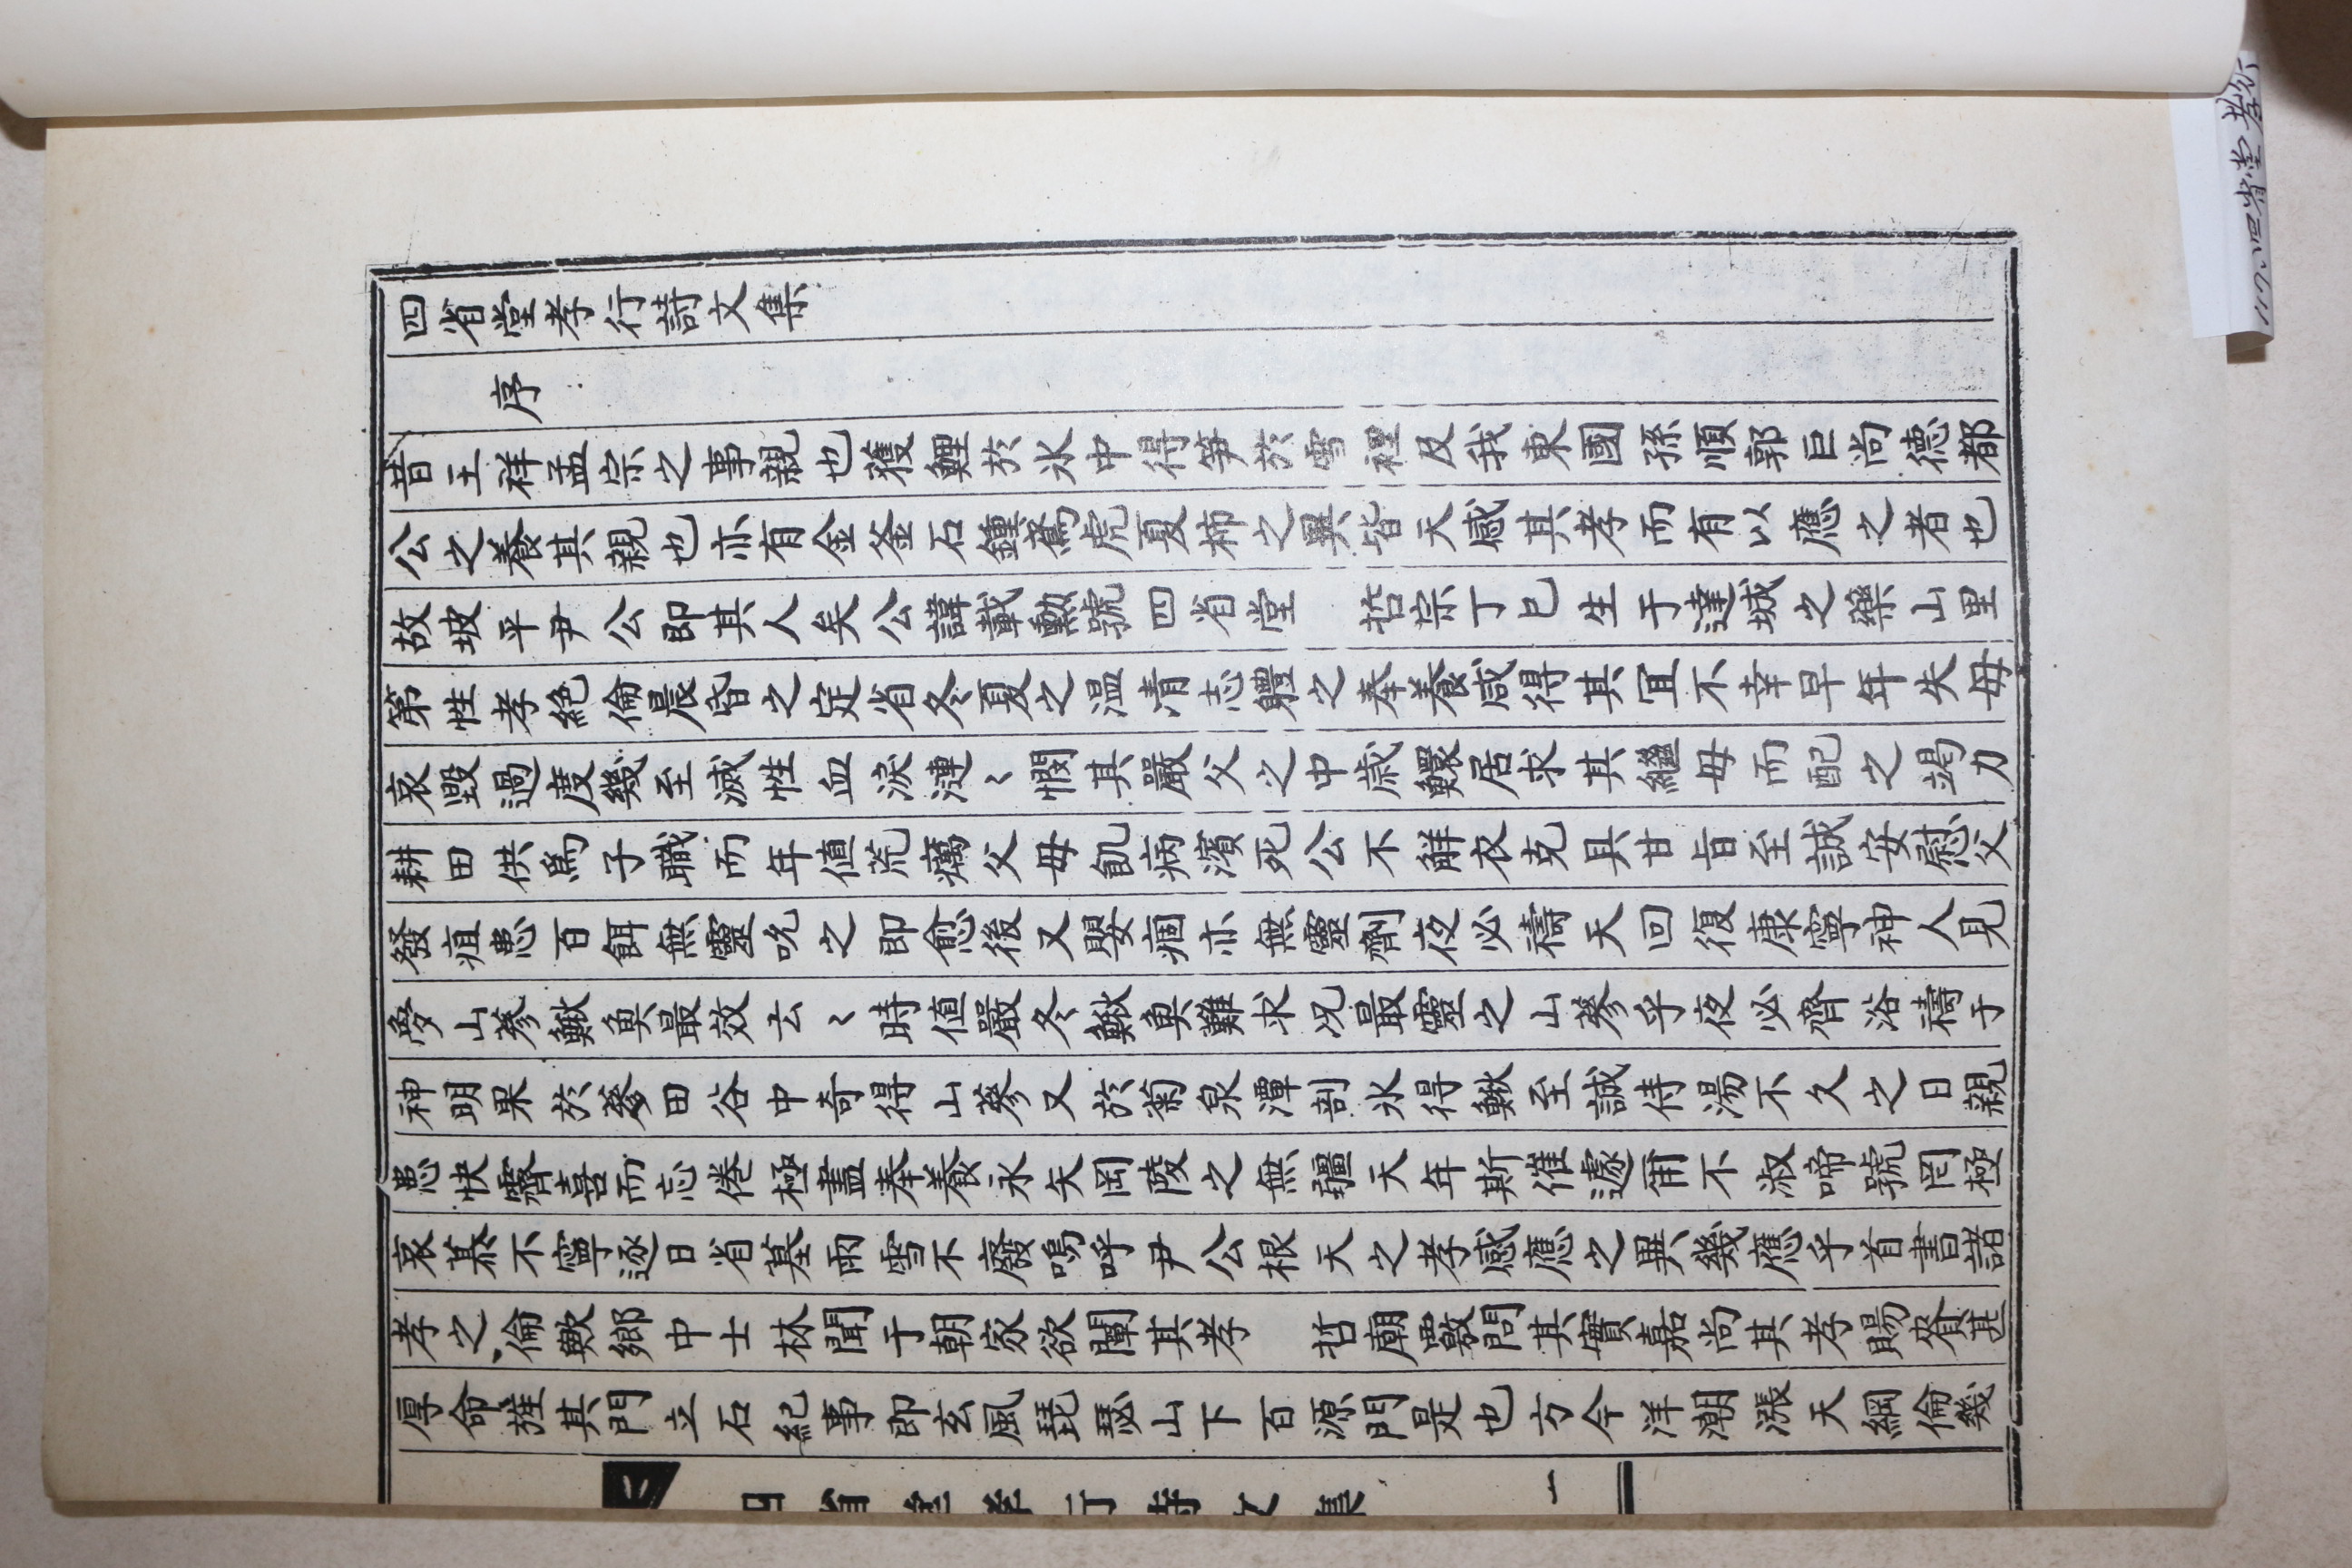 四省堂孝行詩文集
序
昔王祥孟宗之事親也獲鯉於氷中得笋於雪裡及我東國孫順郭巨尚德都
公之養其親也亦有金釜石鍾駕虎夏柿之異皆天感其孝而有以應之者也
故坡平尹公即其人矣公諱載勳號四省堂　哲宗丁巳生于達城之藥山里
第性孝絶倫晨昏之定省冬夏之温凊志軆之奉養咸得其宜不幸早年失母
哀毀過度幾至滅性血淚漣〻憫其嚴父之中歳鰥居求其繼母而配之竭力
耕田供爲子職而年値荒癘父母飢病濱死公不觧衣克具甘旨至誠安慰父
發疽患百餌無靈吮之即愈後又嬰痼亦無靈劑夜必禱天回復康寧神人見
夢山蔘鰍奠最效云〻時値嚴冬鰍奠難求况最靈之山蔘乎夜必齊浴禱于
神明果於蔘田谷中奇得山蔘又於菊泉潭剖氷得鰍至誠侍湯不久之日親
患快霽喜而忘倦極盡奉養永矢岡陵之無疆天年斯催遽爾不淑啼號罔極
哀慕不寧逐日省墓雨雪不廢嗚呼尹公根天之孝感應之異幾應乎首書諸
孝之倫歟鄉中士林聞于朝家欲闡其孝　哲廟覈問其實嘉尚其孝賜賚甚
厚命旌其門立石紀事即玄風琵瑟山下百源門是也方今洋潮漲天綱倫幾
四省堂孝行詩文集　一
11906四省堂孝行